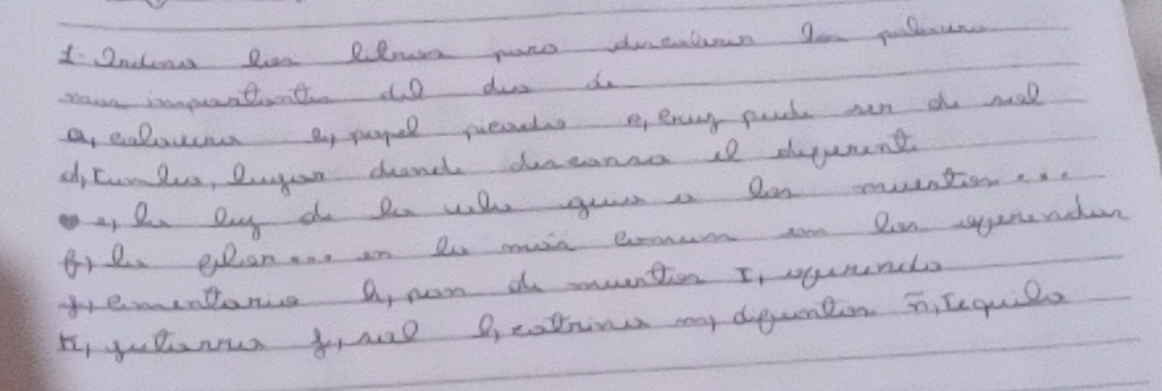 1. Ordena las letras para descubrir las palabras
mas importantes del dia de
a, calavera e, papel picado c, cruz puede ser de sal
d, tumba, lugar donde descansa el difunto
e, la luz de la vela guia a los muertos...
f, la flor... es la más comun en las ofrendas
g, cementario h, pan de muertos I, ofrenda
k, guitarra j, sal l, catrina m, difuntos ñ, tequila